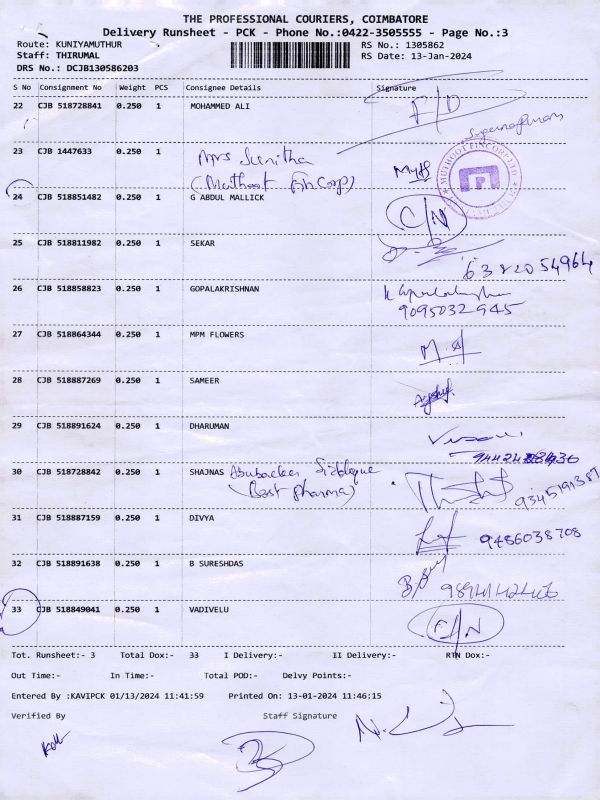 THE PROFESSIONAL COURIERS, COIMBATORE
Delivery Runsheet - PCK - Phone No.:0422-3505555 - Page No.:3
Route: KUNIYAMUTHUR RS No.: 1305862
Staff: THIRUMAL RS Date: 13-Jan-2024
DRS No.: DCJB130586203
S No Consignment No Weight PCS Consignee Details Signature
22 CJB 518728841 0.250 1 MOHAMMED ALI F/D
23 CJB 1447633 0.250 1 Mrs Sunitha
(Muthoot FinCorp)
MUTHOOT FINCORP LTD
24 CJB 518851482 0.250 1 G ABDUL MALLICK C/N
25 CJB 518811982 0.250 1 SEKAR
6382054964
26 CJB 518858823 0.250 1 GOPALAKRISHNAN
9095032945
27 CJB 518864344 0.250 1 MPM FLOWERS
28 CJB 518887269 0.250 1 SAMEER
29 CJB 518891624 0.250 1 DHARUMAN
30 CJB 518728842 0.250 1 SHAJNAS Abubacker Siddique
(Best pharma)
9345191387
31 CJB 518887159 0.250 1 DIVYA 9486038708
32 CJB 518891638 0.250 1 B SURESHDAS
33 CJB 518849041 0.250 1 VADIVELU
Tot. Runsheet:- 3 Total Dox:- 33 I Delivery:- II Delivery:- RTN Dox:-
Out Time:- In Time:- Total POD:- Delvy Points:-
Entered By :KAVIPCK 01/13/2024 11:41:59 Printed On: 13-01-2024 11:46:15
Verified By Staff Signature